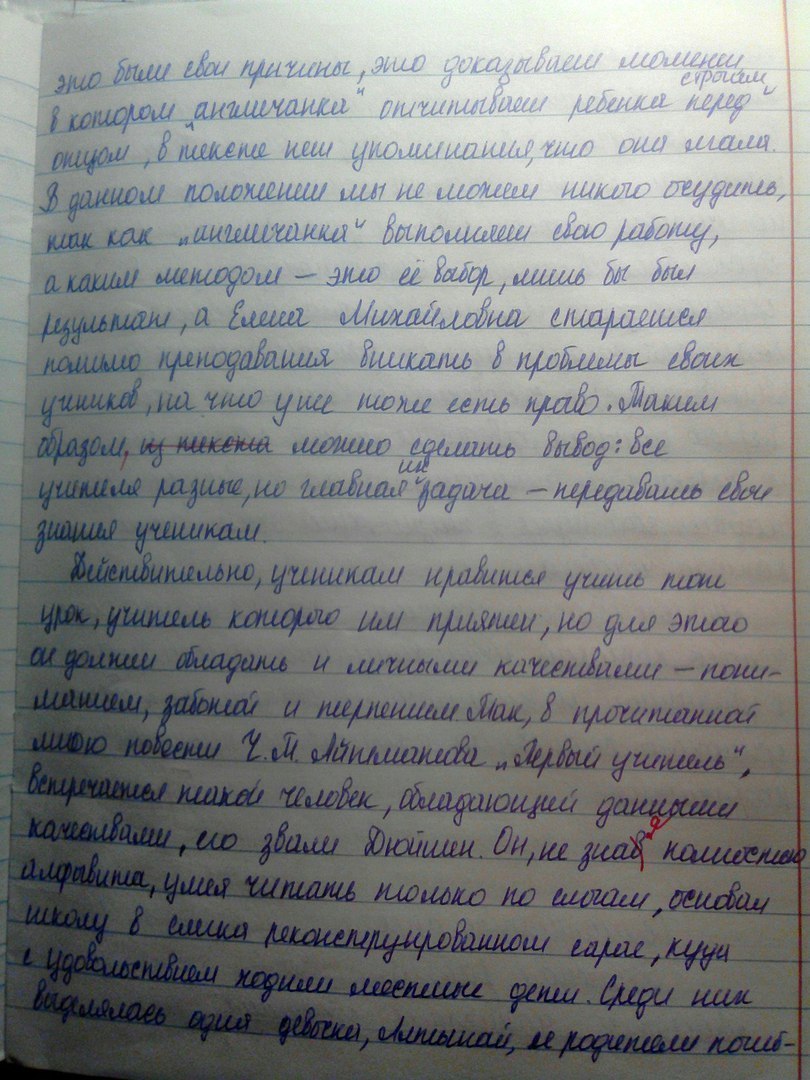 это были свои причины, это доказывает момент
в котором "англичанка" отчитывает ребенка перед строгим
отцом, в тексте нет упоминания, что она лгала.
В данном положении мы не можем никого осудить,
так как "англичанка" выполняет свою работу,
а каким методом – это её выбор, лишь бы был
результат, а Елена Михайловна старается
помимо преподавания вникать в проблемы своих
учеников, на что у уже тоже есть право. Таким
образом, из текста можно сделать вывод: все
учителя разные, но главная их задача – передавать свои
знания ученикам.
Действительно, ученикам нравится учить тот
урок, учитель которого им приятен, но для этого
он должен обладать и личными качествами – пони-
манием, заботой и терпением. Так, в прочитанной
мною повести Ч. Т. Айтматова "Первый учитель",
встречается такой человек, обладающий данными
качествами, его звали Дюйшен. Он, не зная полностью
алфавита, умея читать только по слогам, основал
школу в слегка реконструированном сарае, куда
с удовольствием ходили местные дети. Среди них
выделялась одна девочка, Алтынай, ее родители погиб-